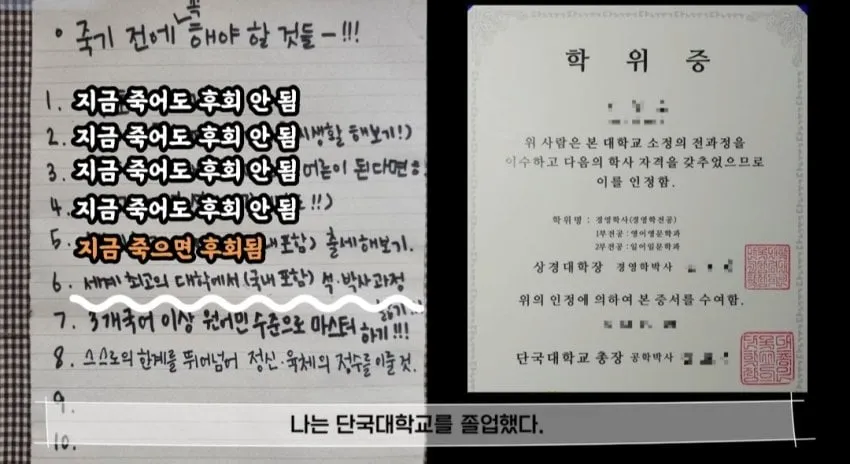 • 죽기 전에 꼭 해야 할 것들 - !!!
1. 지금 죽어도 후회 안 됨
2. 지금 죽어도 후회 안 됨 해보기!)
3. 지금 죽어도 후회 안 됨 어른이 된다면
4. 지금 죽어도 후회 안 됨 !!)
5. 지금 죽으면 후회됨 포함) 출세해보기.
6. 세계 최고의 대학에서 (국내 포함) 석·박사과정
7. 3개국어 이상 원어민 수준으로 마스터 하기!!!
8. 스스로의 한계를 뛰어넘어 정신·육체의 정수를 이룰 것.
9.
10.
학위증
위 사람은 본 대학교 소정의 전과정을
이수하고 다음의 학사 자격을 갖추었으므로
이를 인정함.
학위명 : 경영학사(경영학전공)
1부전공 : 영어영문학과
2부전공 : 일어일문학과
상경대학장 경영학박사
위의 인정에 의하여 본 증서를 수여함.
단국대학교 총장 공학박사
나는 단국대학교를 졸업했다.